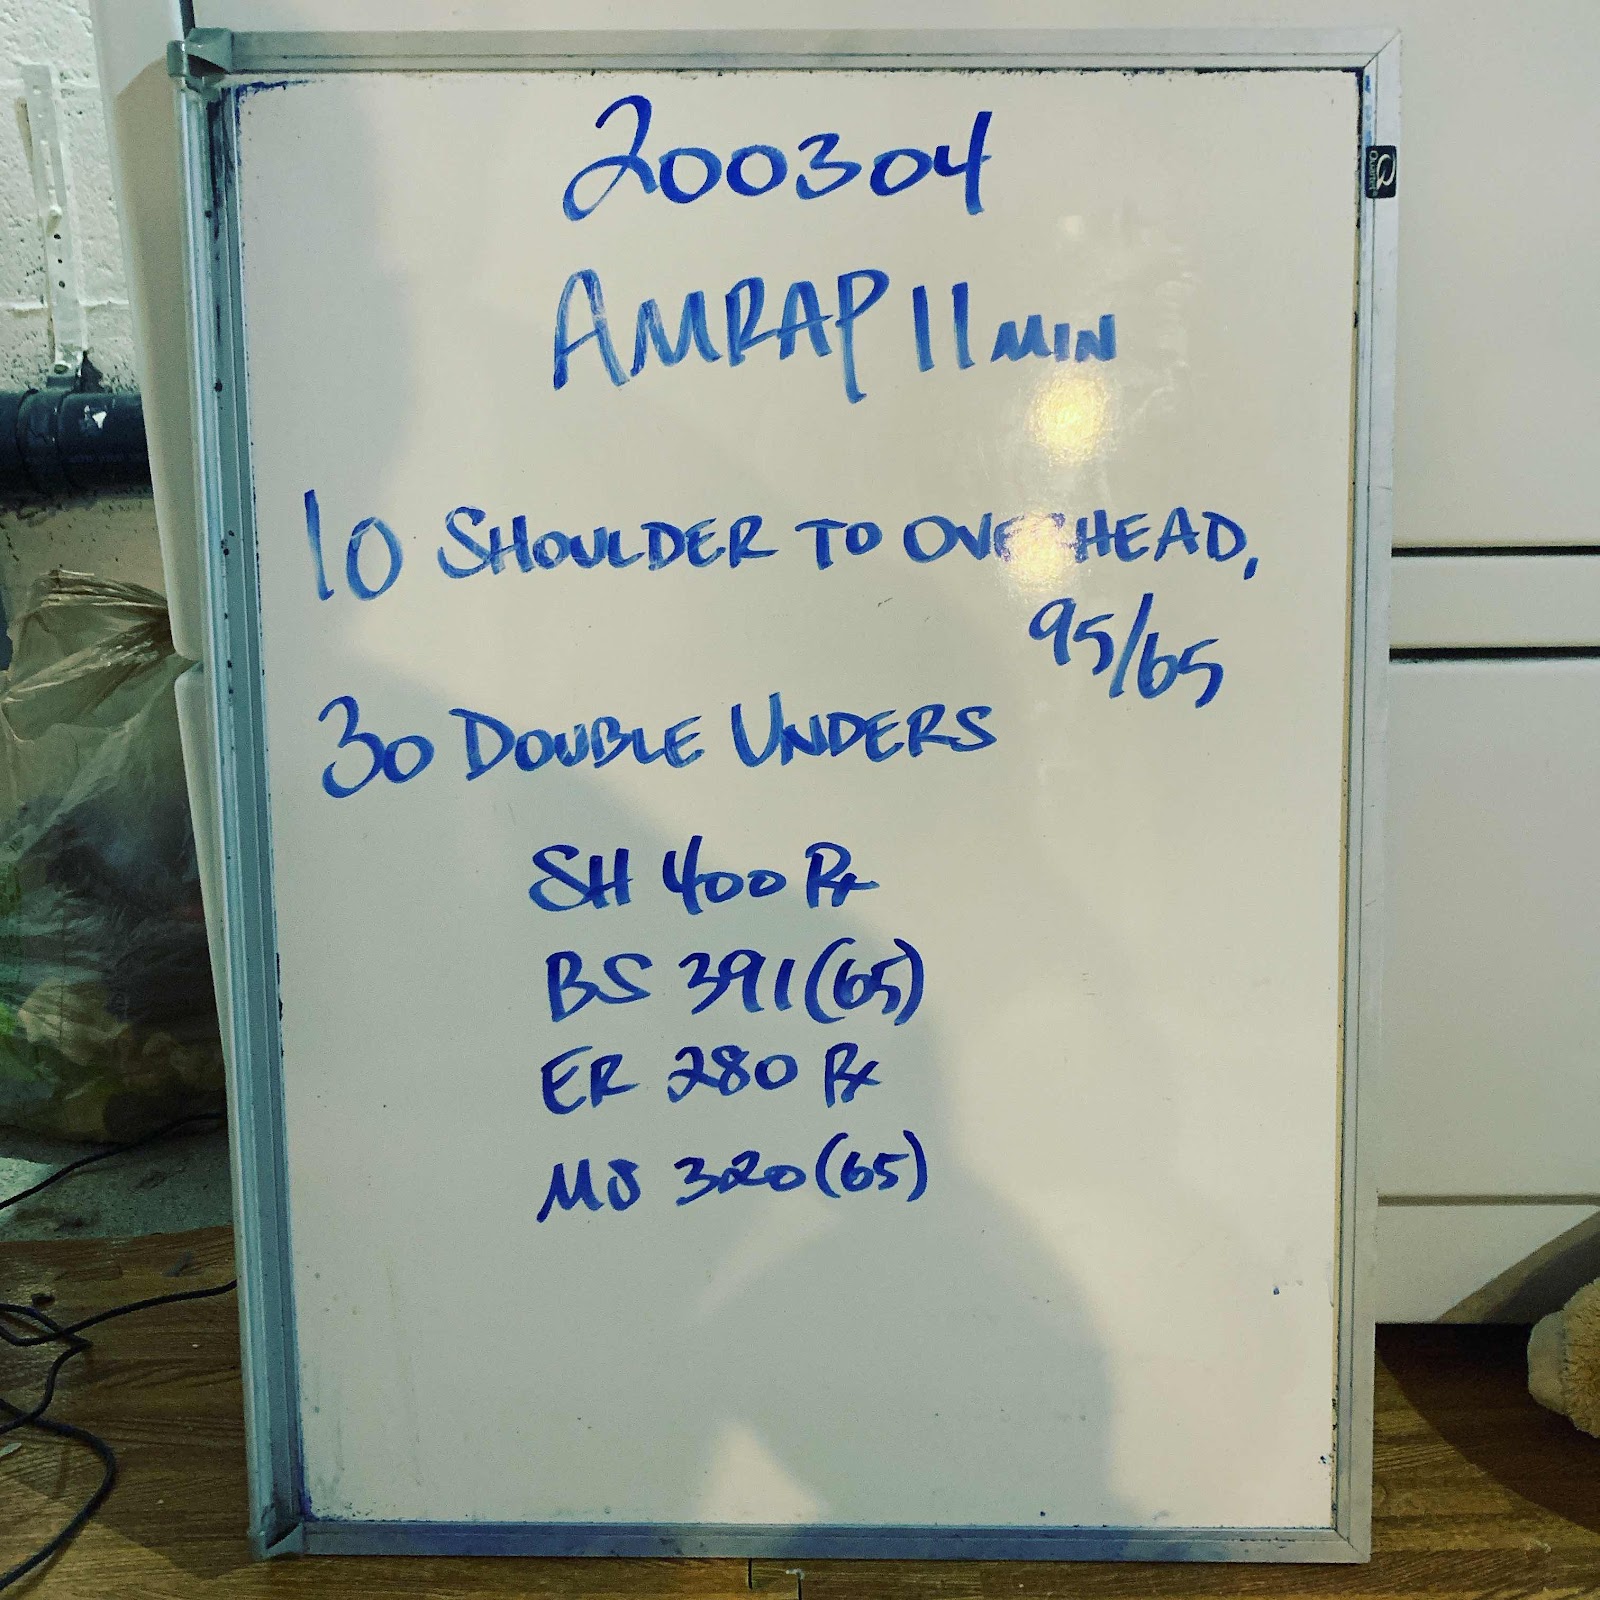 200304
AMRAP 11 MIN
10 SHOULDER TO OVERHEAD,
95/65
30 DOUBLE UNDERS
SH 400 Rx
BS 391 (65)
ER 280 Rx
MJ 320 (65)
Quartet